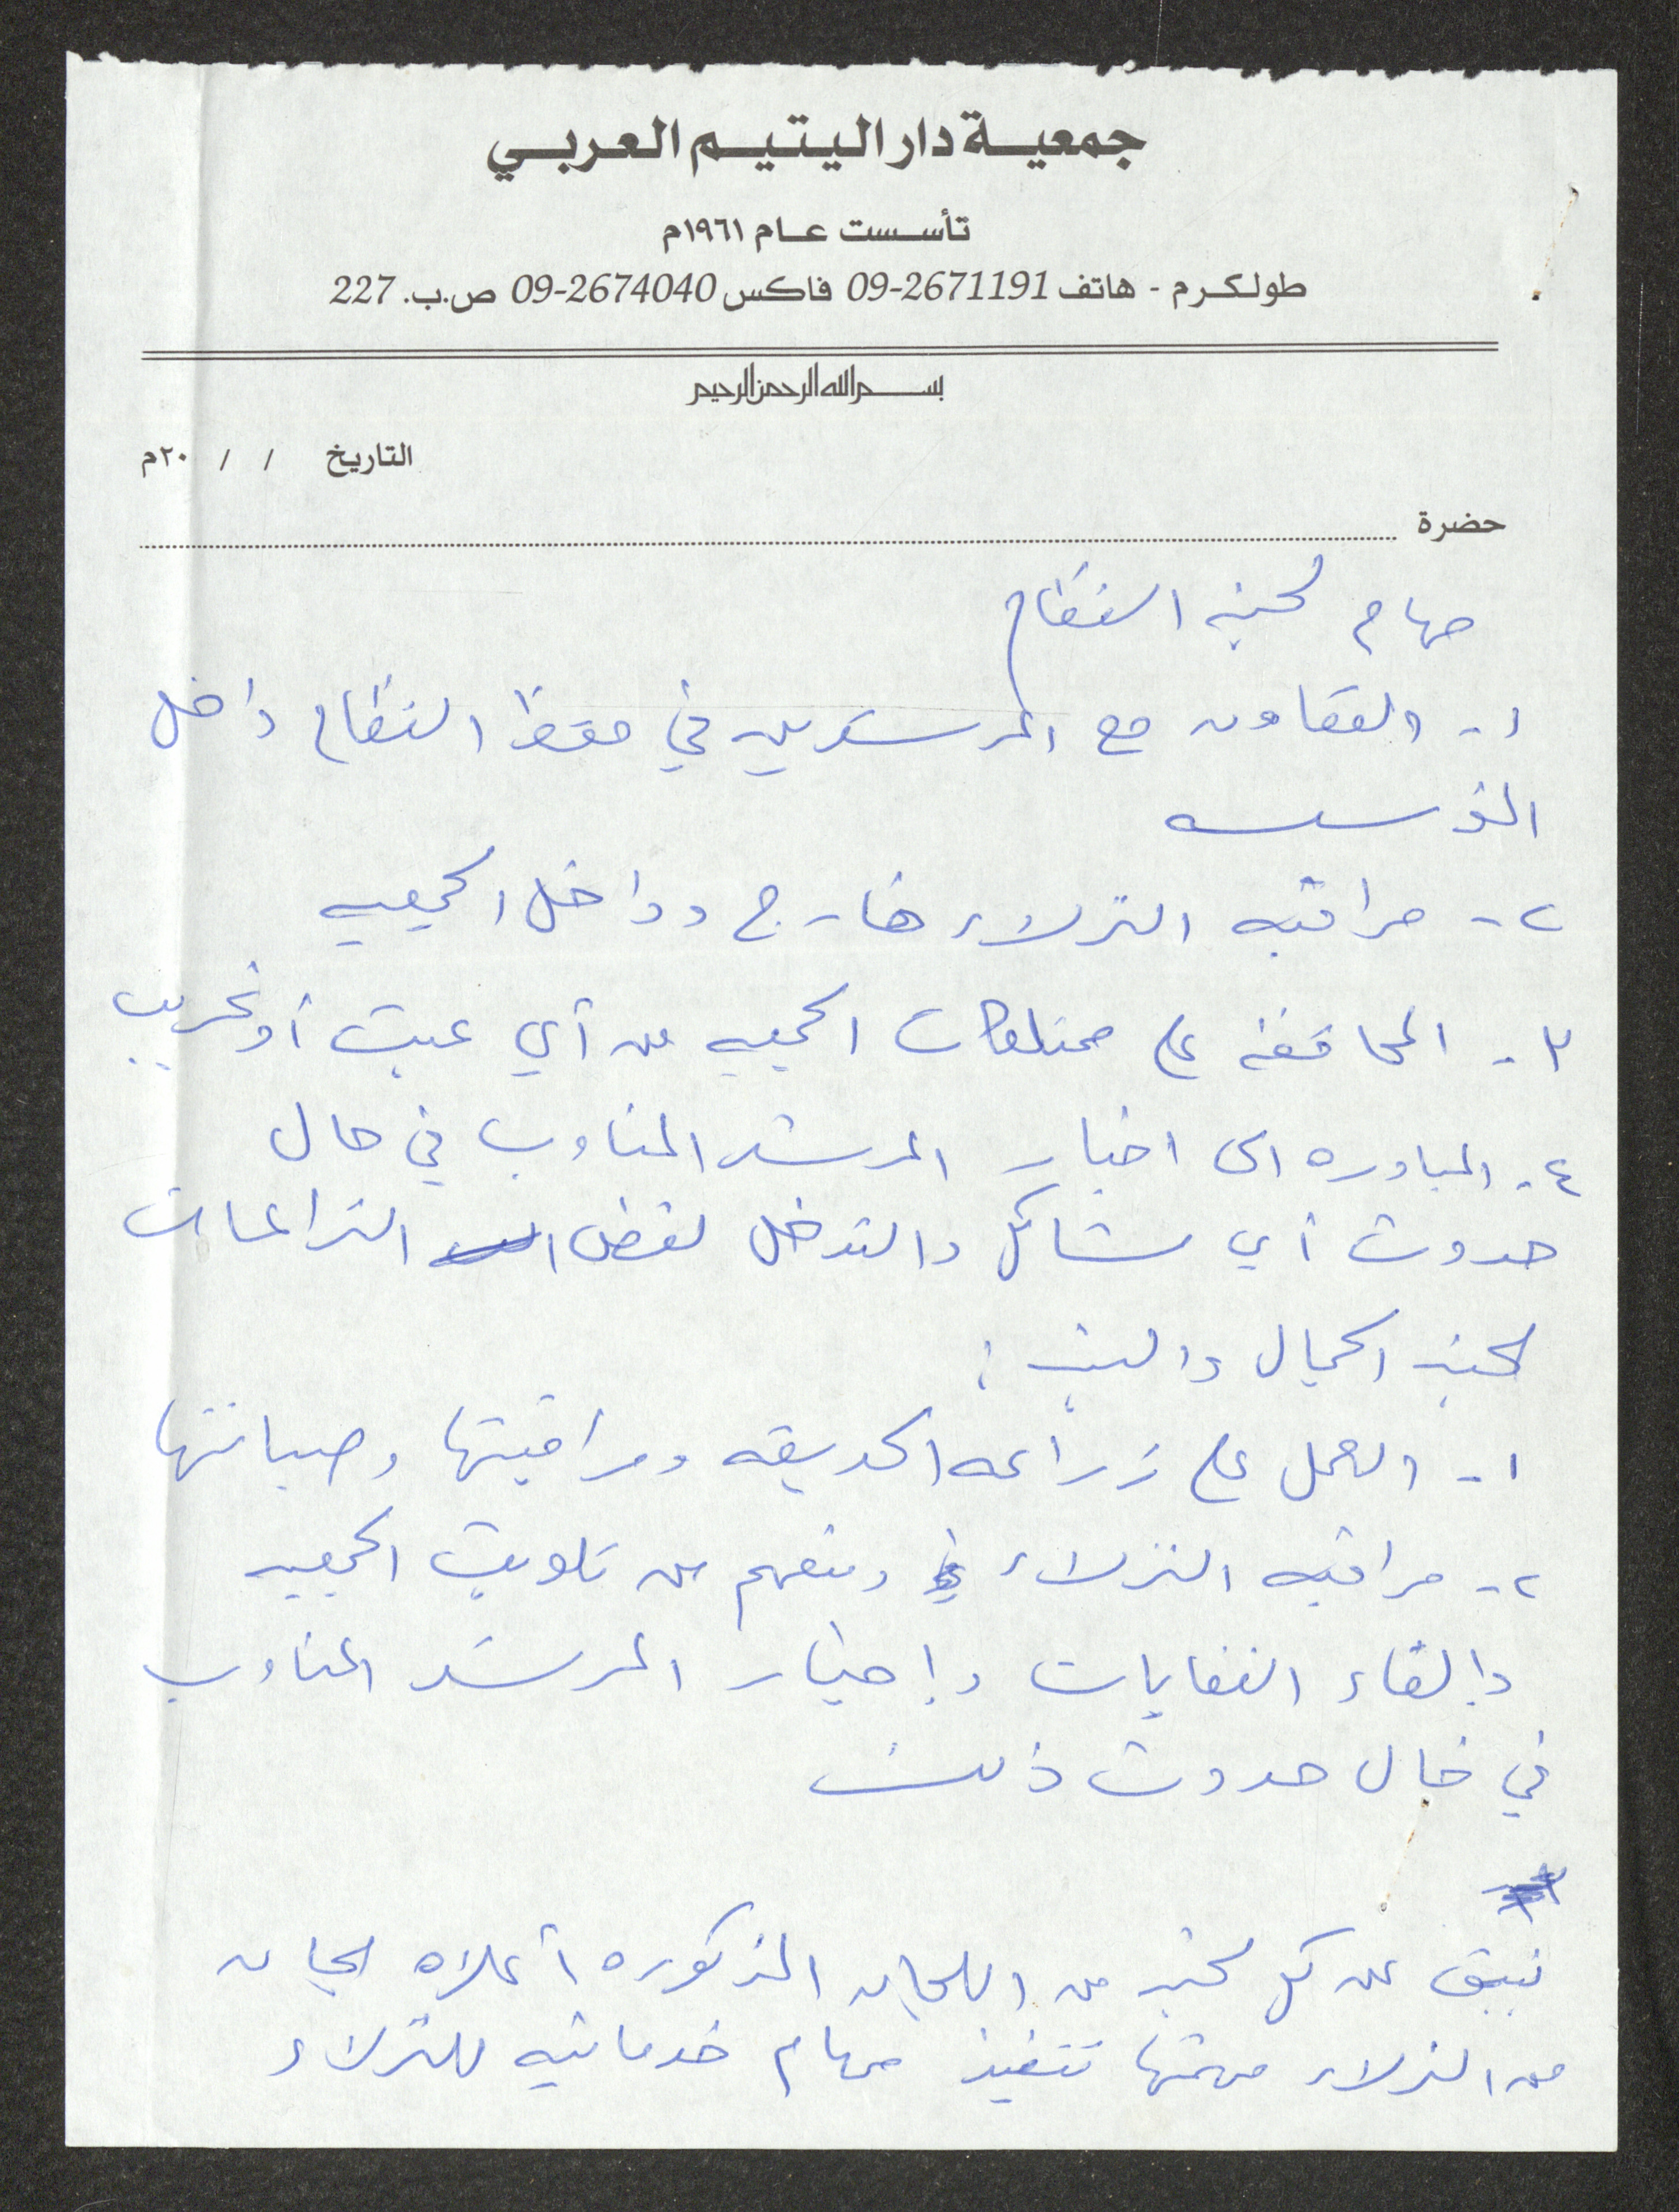 جمعية دار اليتيم العربي
تأسست عام ١٩٦١م
طولكرم - هاتف 09-2671191 فاكس 09-2674040 ص.ب. 227
بسم الله الرحمن الرحيم
التاريخ / / ٢٠م
حضرة
مهام لجنة النظام
١- التعاون مع المرشدين في حفظ النظام داخل
المؤسسه
٢- مراقبه النزلاء خارج وداخل الجمعيه
٣- المحافظة على ممتلكات الجمعيه من أي عبث أو تخريب
٤- المبادره الى اخبار المرشد المناوب في حال
حدوث أي مشاكل والتدخل لفض النزاعات
لجنة الجمال والبيئة :
١- العمل على زراعه الحديقه ومراقبتها وصيانتها
٢- مراقبه النزلاء ومنعهم من تلويث الجمعيه
وإلقاء النفايات وإخبار المرشد المناوب
في حال حدوث ذلك
ينبثق عن كل لجنة من اللجان المذكوره أعلاه لجان
من النزلاء مهمتها تنفيذ مهام خدماتيه للنزلاء